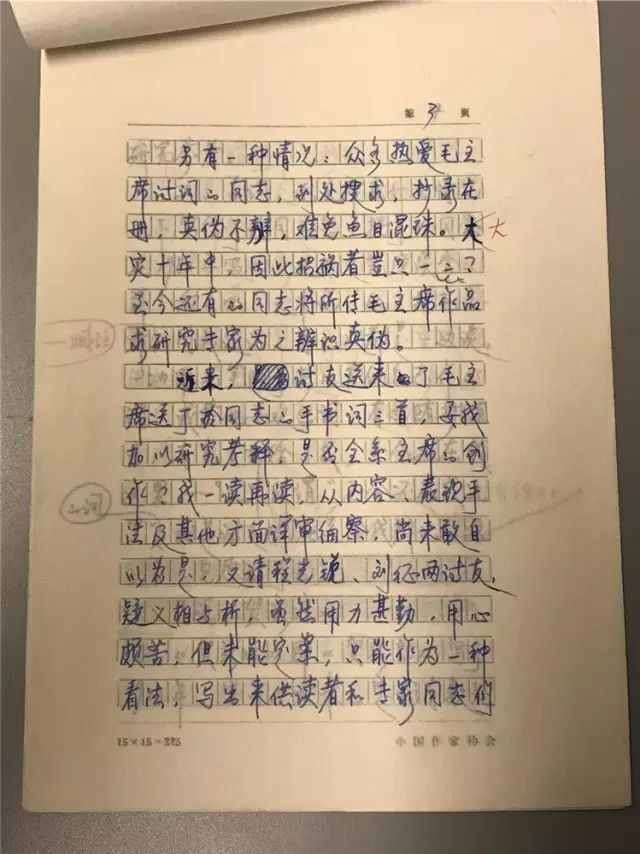 第3页
另有一种情况：众多热爱毛主
席诗词的同志，到处搜求，抄录在
册，真伪不辨，难免鱼目混珠。大
灾十年中，因此招祸者岂只一二？
至今还有的同志将所传毛主席作品
求研究专家为之辨识真伪。
近来，诗友送来了毛主
席送丁玲同志的手书词三首，要我
加以研究考释，是否全系主席的创
作？我一读再读，从内容、表现手
法及其他方面详审细察，尚未敢自
以为是。又请程光锐、刘征两诗友，
疑义相与析，虽然用力甚勤，用心
颇苦，但未能定案，只能作为一种
看法，写出来供读者和专家同志们
15×15=225
中国作家协会